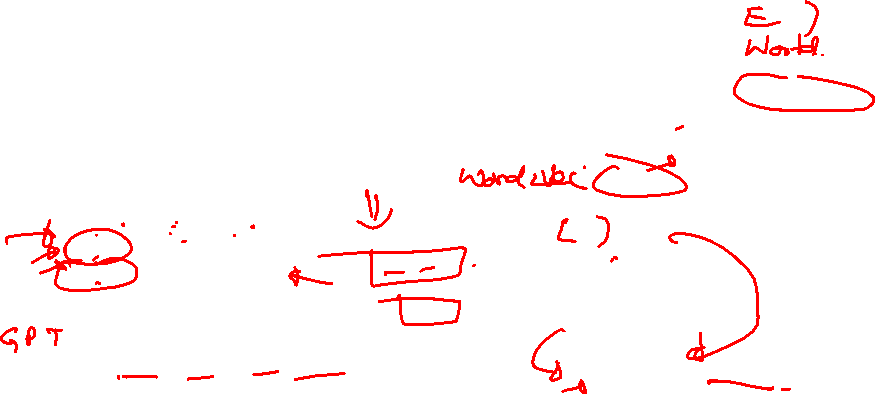 E )
World
word2vec
( )
GPT